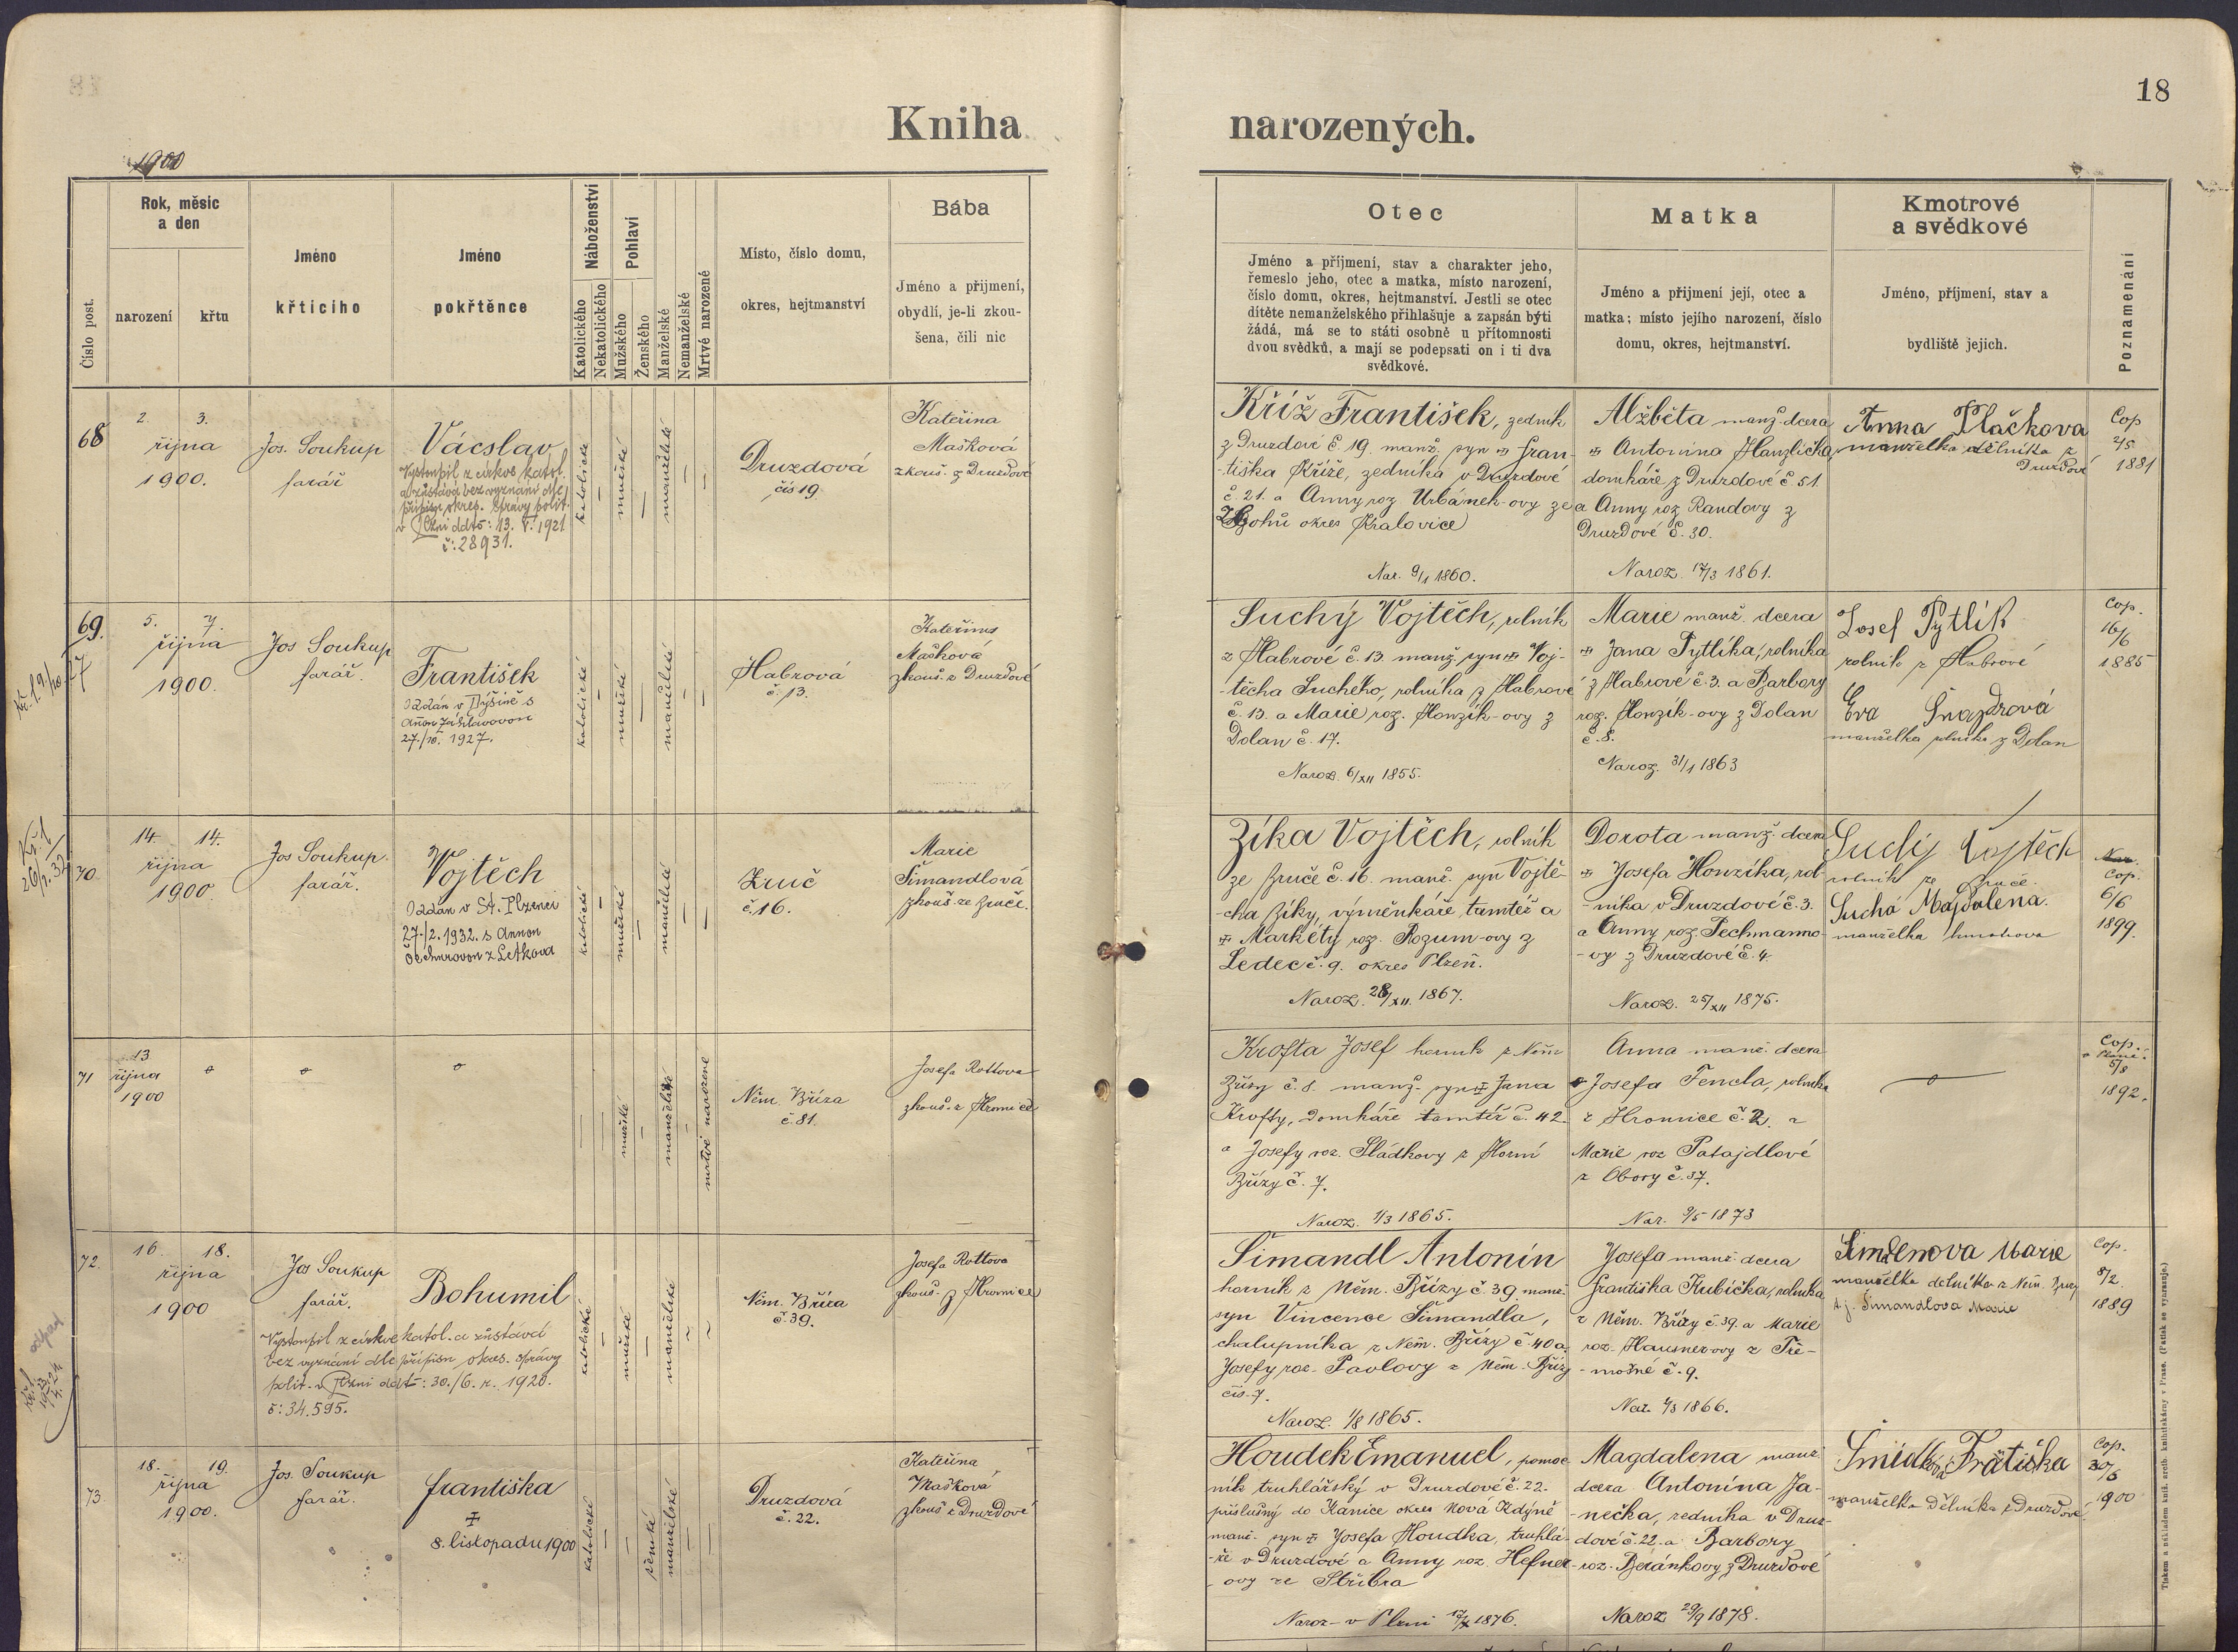 18
Kniha narozených.
1900
Číslo post.
Rok, měsíc
a den
narození
křtu
Jméno
křticího
Jméno
pokřtěnce
Náboženství
Katolického
Nekatolického
Pohlaví
Mužského
Ženského
Manželské
Nemanželské
Mrtvé narozené
Místo, číslo domu,
okres, hejtmanství
Bába
Jméno a přijmení,
obydlí, je-li zkou-
šena, čili nic
Otec
Jméno a příjmení, stav a charakter jeho,
řemeslo jeho, otec a matka, místo narození,
číslo domu, okres, hejtmanství. Jestli se otec
dítěte nemanželského přihlašuje a zapsán býti
žádá, má se to státi osobně u přítomnosti
dvou svědků, a mají se podepsati on i ti dva
svědkové.
Matka
Jméno a přijmení její, otec a
matka; místo jejího narození, číslo
domu, okres, hejtmanství.
Kmotrové
a svědkové
Jméno, příjmení, stav a
bydliště jejich.
Poznamenání
68
2. 3.
října
1900.
Jos. Soukup
farář
Vácslav
Vystoupil z církve katol.
a zůstává bez vyznání dle
přípisu okres. správy polit.
v Plzni ddto: 13. V. 1921
č: 28931.
katolické
mužské
manželské
Druzdová
čís 19
Kateřina
Mašková
zkouš. z Druzdové
Kříž František, zedník
z Druzdové č 19. manž. syn ✠ Fran-
-tiška Kříže, zedníka v Druzdové
č. 21. a Anny roz Urbánek-ovy ze
Lhohů okres Kralovice
Nar. 9/1 1860.
Alžběta manž. dcera
✠ Antonína Hanzlíčka,
domkáře z Druzdové č. 51
a Anny roz Randovy z
Druzdové č. 30.
Naroz. 17/3 1861.
Anna Plačkova
manzelka dělníka z
Druzdové
Cop
2/5
1881
69.
5. 7.
října
1900.
Jos Soukup
farář.
František
Oddán v Dýšině s
27./10. 1927.
katolické
mužské
manželské
Habrová
č. 13.
Kateřina
Mašková
zkouš. z Druzdové
Suchý Vojtěch, rolník
z Habrové č. 13. manž. syn ✠ Voj-
-těcha Suchého, rolníka z Habrové
č. 13. a Marie roz. Honzík-ovy z
Dolan č. 17.
Naroz. 6/XII 1855.
Marie manž. dcera
✠ Jana Pytlíka, rolníka
z Habrové č. 3. a Barbory
roz. Honzík-ovy z Dolan
č. 8.
Naroz. 31/1 1863
Josef Pytlík
rolník z Habrové
Eva Šnajdrová
manželka rolníka z Dolan
Cop.
16/6
1885
70
14. 14.
října
1900.
Jos Soukup.
farář.
Vojtěch
Oddán v St. Plzenci
27./2. 1932. s Annou
Čechurovou z Letkova
katolické
mužské
manželské
Zruč
č. 16.
Marie
Šimandlová
zkouš. ze Zruče.
Zíka Vojtěch, rolník
ze Zruče č. 16. manž. syn Vojtě-
-cha Zíky, výměnkáře tamtéž a
✠ Markéty roz. Rozum-ovy z
Ledec č. 9. okres Plzeň.
Naroz. 28/XII. 1867.
Dorota manž. dcera
✠ Josefa Honzíka, rol-
-níka v Druzdové č. 3.
a Anny roz. Techmanno-
-vy z Druzdové č. 4.
Naroz. 25/XII 1875.
Suchý Vojtěch
rolník ze Zruče.
Suchá Majdalena.
manželka kmotrova
Nar.
Cop.
6/6
1899.
71
13
října
1900
mužské
manželské
mrtvě narozené
Něm. Bříza
č. 81.
Josefa Rottova
zkouš. z Hromnice
Krofta Josef horník z Něm
Břízy č. 8. manž. syn ✠ Jana
Krofty, domkáře tamtéž č. 42.
a Josefy roz. Sládkovy z Horní
Břízy č. 7.
Naroz. 1/3 1865.
Anna manž. dcera
Josefa Tencla, rolníka
z Hromnice č. 2. a
Marie roz Patajdlové
z Obory č. 37.
Nar. 9/5 1873
Cop.
5/8
1892.
72.
16 18.
října
1900
Jos Soukup
farář.
Bohumil
Vystoupil z církve katol. a zůstává
bez vyznání dle přípisu okres. správy
polit. v Plzni ddto: 30./6. r. 1920.
č: 34.595.
katolické
mužské
manželské
Něm. Bříza
č. 39.
Josefa Rottova
zkouš. z Hromnice
Šimandl Antonín
horník z Něm. Břízy č. 39. manž.
syn Vincence Šimandla,
chalupníka z Něm. Břízy č 40 a
Josefy roz. Pavlovy z Něm. Břízy
čís. 7.
Naroz. 1/8 1865.
Josefa manž. dcera
Františka Kubíčka, rolníka
z Něm. Břízy č. 39. a Marie
roz. Hausnerovy z Tře-
-mošné č. 9.
1866.
Marie
manželka dělníka z Něm. Brízy
t.j. Šimandlova Marie
Cop.
8/2.
1889
73.
18. 19.
října
1900.
Jos. Soukup
farář.
Františka
✠
8. listopadu 1900
katolické
ženské
manželské
Druzdová
č. 22.
Kateřina
Mašková
zkouš z Druzdové
Houdek Emanuel, pomoc
ník truhlářský v Druzdové č. 22.
příslušný do Kanice okres Nová Kdýně
manž. syn ✠ Josefa Houdka, truhlá-
-ře v Druzdové a Anny roz. Hefner-
-ovy ze Stříbra
Naroz- v Plzni 1876.
Magdalena manž.
dcera Antonína Ja-
-nečka, zedníka v Druz-
dové č. 22. a Barbory
roz. Beránkovy z Druzdové
Naroz 29/9 1878.
manželka dělníka z Druzdové
Cop.
1900
Tiskem a nákladem kníž. arcib. knihtiskárny v Praze. (Patisk se vyhrazuje.)